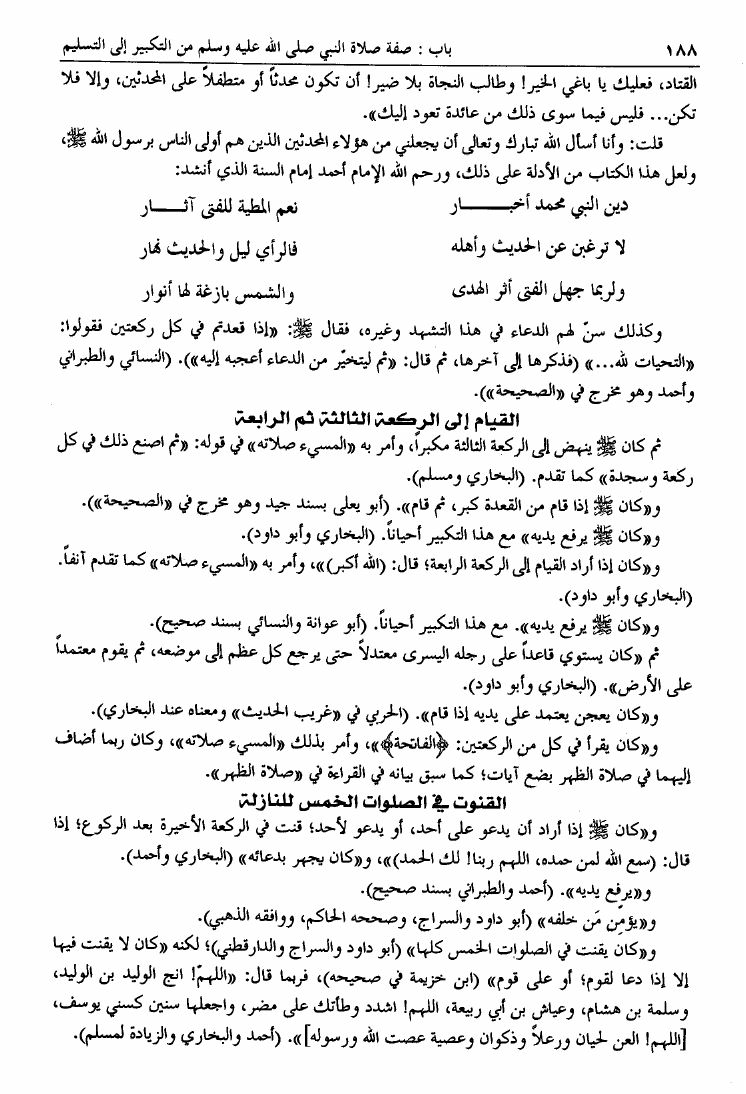 ١٨٨ باب : صفة صلاة النبي صلى الله عليه وسلم من التكبير إلى التسليم
القتاد، فعليك يا باغي الخير! وطالب النجاة بلا ضير! أن تكون محدثاً أو متطفلاً على المحدثين، وإلا فلا
تكن... فليس فيما سوى ذلك من عائدة تعود إليك».
قلت: وأنا أسأل الله تبارك وتعالى أن يجعلني من هؤلاء المحدثين الذين هم أولى الناس برسول الله ﷺ،
ولعل هذا الكتاب من الأدلة على ذلك، ورحم الله الإمام أحمد إمام السنة الذي أنشد:
دين النبي محمد أخبـــــــار نعم المطية للفتى آثـــــار
لا ترغبن عن الحديث وأهله فالرأي ليل والحديث نهار
ولربما جهل الفتى أثر الهدى والشمس بازغة لها أنوار
وكذلك سنّ لهم الدعاء في هذا التشهد وغيره، فقال ﷺ: «إذا قعدتم في كل ركعتين فقولوا:
«التحيات لله...» (فذكرها إلى آخرها، ثم قال: «ثم ليتخيّر من الدعاء أعجبه إليه»). (النسائي والطبراني
وأحمد وهو مخرج في «الصحيحة»).
القيام إلى الركعة الثالثة ثم الرابعة
ثم كان ﷺ ينهض إلى الركعة الثالثة مكبراً، وأمر به «المسيء صلاته» في قوله: «ثم اصنع ذلك في كل
ركعة وسجدة» كما تقدم. (البخاري ومسلم).
و«كان ﷺ إذا قام من القعدة كبر، ثم قام». (أبو يعلى بسند جيد وهو مخرج في «الصحيحة»).
و«كان ﷺ يرفع يديه» مع هذا التكبير أحياناً. (البخاري وأبو داود).
و«كان إذا أراد القيام إلى الركعة الرابعة؛ قال: (الله أكبر)»، وأمر به «المسيء صلاته» كما تقدم آنفاً.
(البخاري وأبو داود).
و«كان ﷺ يرفع يديه». مع هذا التكبير أحياناً. (أبو عوانة والنسائي بسند صحيح).
ثم «كان يستوي قاعداً على رجله اليسرى معتدلاً حتى يرجع كل عظم إلى موضعه، ثم يقوم معتمداً
على الأرض». (البخاري وأبو داود).
و«كان يعجن يعتمد على يديه إذا قام». (الحربي في «غريب الحديث» ومعناه عند البخاري).
و«كان يقرأ في كل من الركعتين: ﴿الفاتحة﴾»، وأمر بذلك «المسيء صلاته»، وكان ربما أضاف
إليهما في صلاة الظهر بضع آيات؛ كما سبق بيانه في القراءة في «صلاة الظهر».
القنوت في الصلوات الخمس للنازلة
و«كان ﷺ إذا أراد أن يدعو على أحد، أو يدعو لأحد؛ قنت في الركعة الأخيرة بعد الركوع؛ إذا
قال: (سمع الله لمن حمده، اللهم ربنا! لك الحمد)»، و«كان يجهر بدعائه» (البخاري وأحمد).
و«يرفع يديه». (أحمد والطبراني بسند صحيح).
و«يؤمّن مَن خلفه» (أبو داود والسراج، وصححه الحاكم، ووافقه الذهبي).
و«كان يقنت في الصلوات الخمس كلها» (أبو داود والسراج والدارقطني)؛ لكنه «كان لا يقنت فيها
إلا إذا دعا لقوم؛ أو على قوم» (ابن خزيمة في صحيحه)، فربما قال: «اللهمّ! انج الوليد بن الوليد،
وسلمة بن هشام، وعياش بن أبي ربيعة، اللهم! اشدد وطأتك على مضر، واجعلها سنين كسني يوسف،
[اللهم! العن لحيان ورعلاً وذكوان وعصية عصت الله ورسوله]». (أحمد والبخاري والزيادة لمسلم).